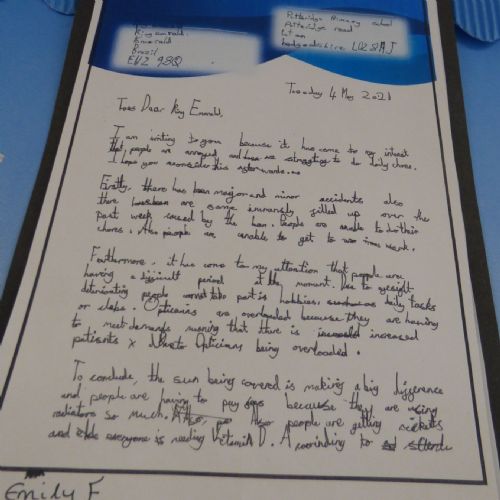 King Emerald
Emerald
Brazil
EV2 9SQ
Putteridge Primary school
Putteridge road
Luton
bedgeordshire LU2 8AJ
Tuesday 4 May 2021
Dear King Emerald,
I am writing to you because it has come to my interest
that people are annoyed and are struggling to do daily chores.
I hope you consider this afterwards.
Firstly, there has been major and minor accidents also
there are some filled up over the
past week caused by the ban. People are unable to do their
chores. Also people are unable to get to work.
Furthermore, it has come to my attention that people are
having a difficult period at the moment. Due to eyesight
deteriorating people wont take part in hobbies, daily tasks
or clubs. Opticians are overloaded because they are having
to meet demands meaning that there is increased
patients Opticians being overloaded.
To conclude, the sun being covered is making a big difference
and people are having to pay because they are using
radiators so much. Also people are getting rickets
and everyone is needing Vitamin D. Accorinding to
Emily F